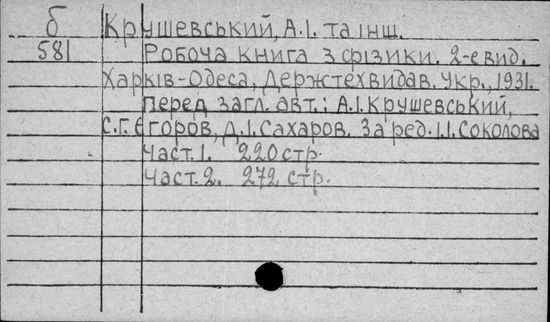 б Крушевський, А.І. та інш.
581 Робоча книга з фізики. 2-е вид.
Харків-Одеса, Держтехвидав. Укр., 1931.
Перед загл. авт.: А.І. Крушевський,
С.Г. Єгоров, Д.І. Сахаров. За ред. І.І. Соколова
Част. 1. 220 стр.
Част. 2. 272 стр.